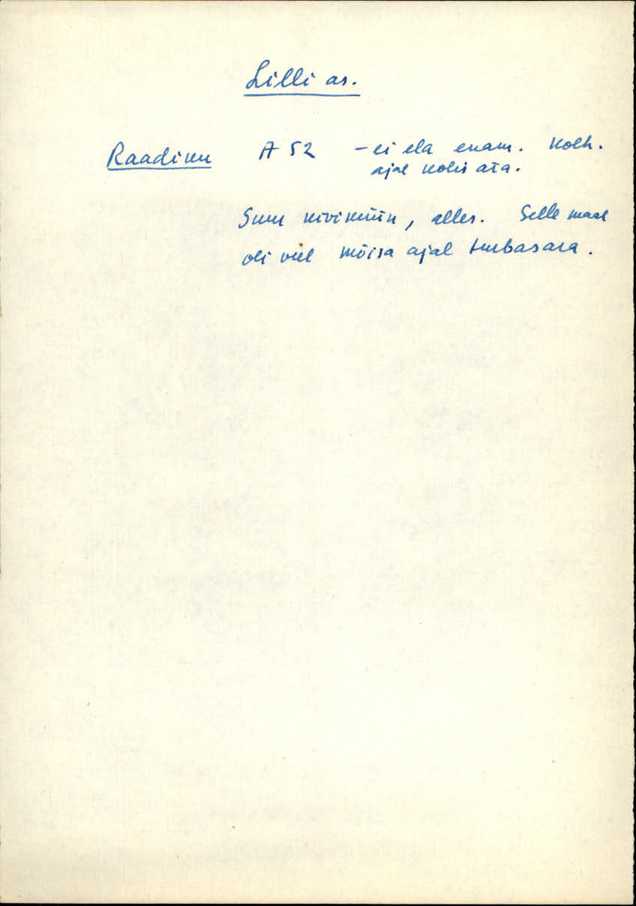 Lilli as.
Raadiku A 52 - ei ela enam. Kolh.
ajal kolis ära.
Suur kivimüür, alles. Selle maal
oli veel mõisa ajal